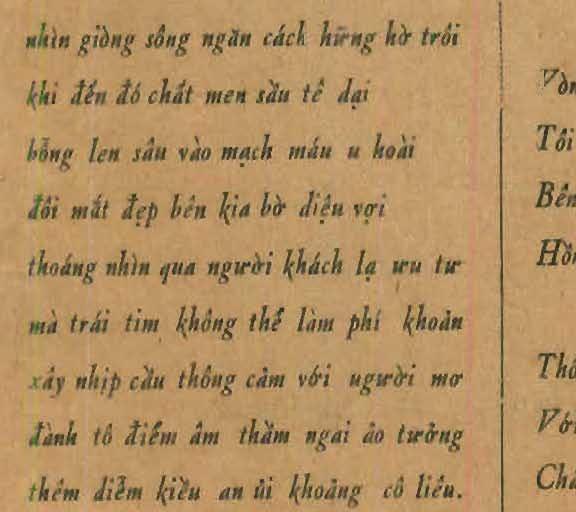 nhìn giòng sông ngăn cách hững hờ trôi
khi đến đó chất men sầu tê dại
bỗng len sâu vào mạch máu u hoài
đôi mắt đẹp bên kia bờ diệu vợi
thoáng nhìn qua người khách lạ ưu tư
mà trái tim không thể làm phí khoản
xây nhịp cầu thông cảm với người mơ
đành tô điểm âm thầm ngai ảo tưởng
thêm diễm kiều an ủi khoảng cô liêu.
Tôi
Bên
Với